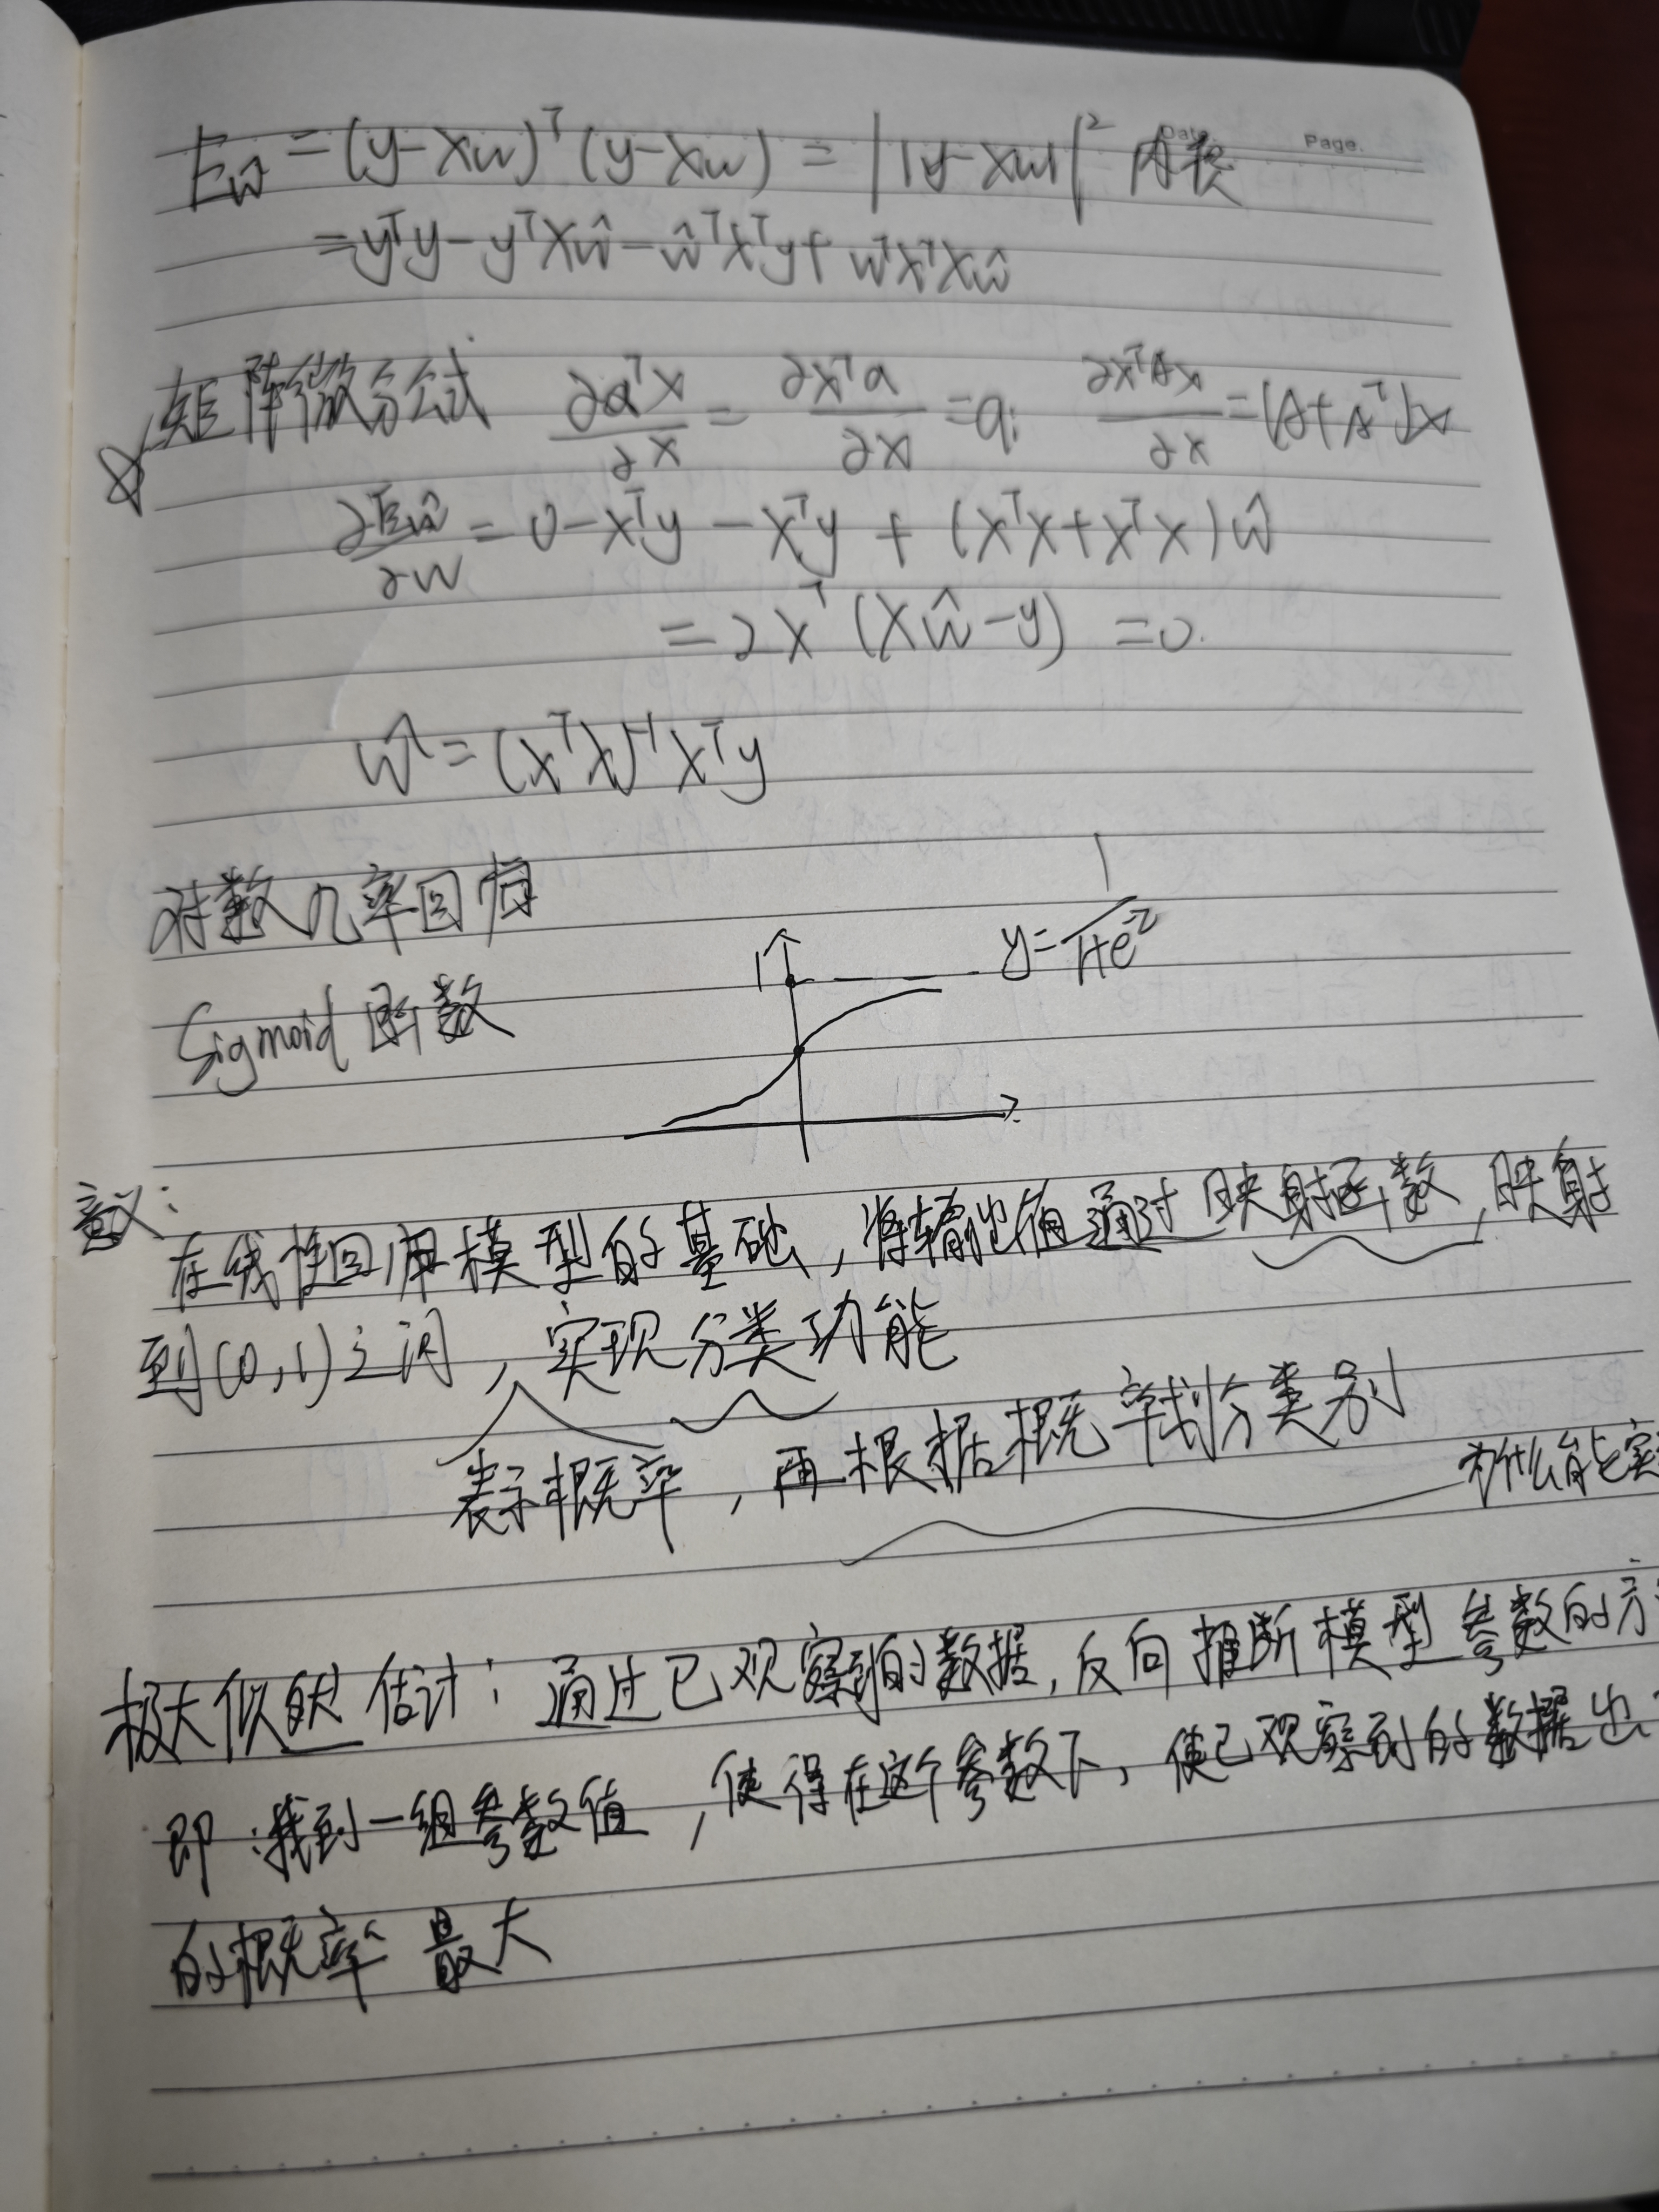 Date. Page.
Eŵ = (y-Xw)ᵀ(y-Xw) = ||y-Xw||² 内积
=yᵀy-yᵀXŵ-ŵᵀXᵀy+wᵀXᵀXŵ
矩阵微分公式 ∂aᵀx/∂x = ∂xᵀa/∂x = a; ∂xᵀAx/∂x = (A+Aᵀ)x
∂Eŵ/∂w = 0-Xᵀy-Xᵀy+(XᵀX+XᵀX)ŵ
=2Xᵀ(Xŵ-y) =0.
ŵ=(XᵀX)⁻¹Xᵀy
对数几率回归
Sigmoid 函数
1
y=1/(1+e⁻ᶻ)
意义:
在线性回归模型的基础,将输出值通过映射函数,映射
到(0,1)之间,实现分类功能
表示概率,再根据概率划分类别
为什么能实
极大似然估计:通过已观察到的数据,反向推断模型参数的方
即:找到一组参数值,使得在这个参数下,使已观察到的数据出
的概率最大